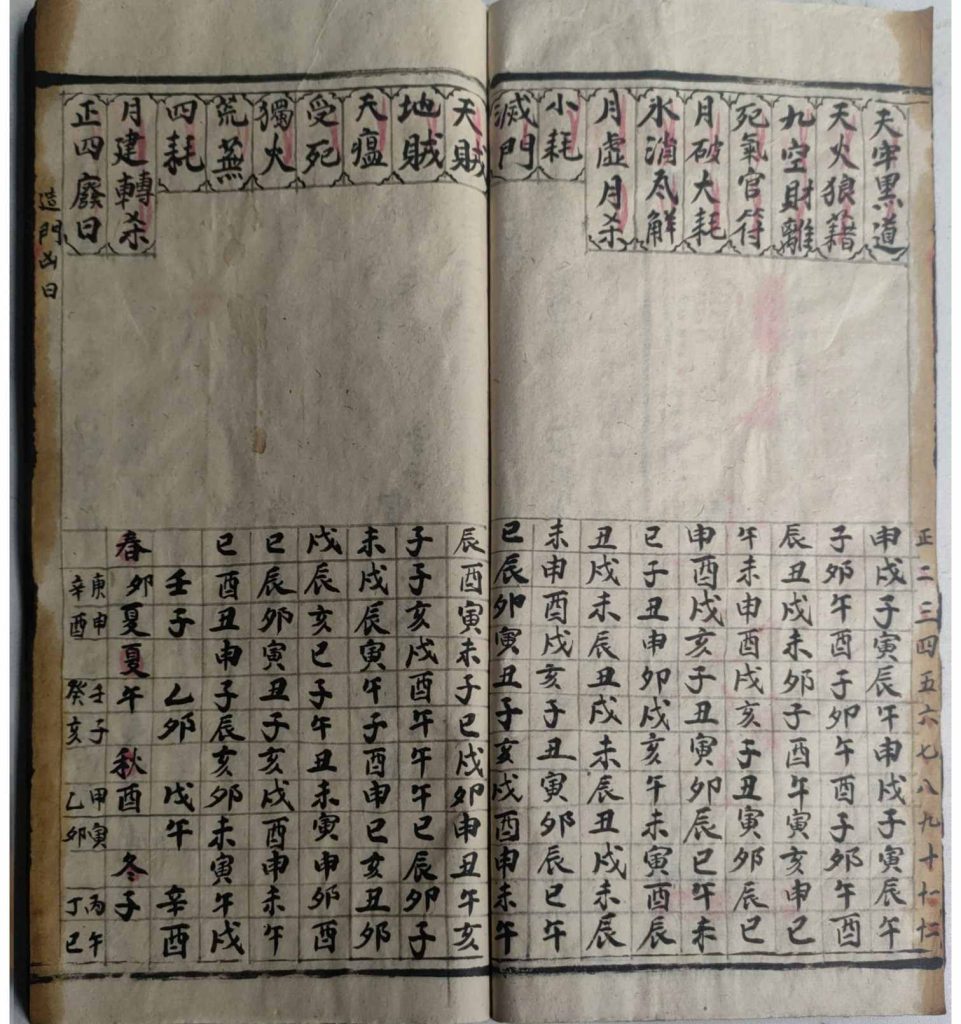 正二三四五六七八九十十一十二
天牢黑道 申戌子寅辰午申戌子寅辰午
天火狼籍 子卯午酉子卯午酉子卯午酉
九空財離 辰丑戌未卯子酉午寅亥申巳
死氣官符 午未申酉戌亥子丑寅卯辰巳
月破大耗 申酉戌亥子丑寅卯辰巳午未
氷消瓦解 巳子丑申卯戌亥午未寅酉辰
月虛月杀 丑戌未辰丑戌未辰丑戌未辰
小耗 未申酉戌亥子丑寅卯辰巳午
滅門 巳辰卯寅丑子亥戌酉申未午
天賊 辰酉寅未子巳戌卯申丑午亥
地賊 子子亥戌酉午午午巳辰卯子
天瘟 未戌辰寅午子酉申巳亥丑卯
受死 戌辰亥巳子午丑未寅申卯酉
獨火 巳辰卯寅丑子亥戌酉申未午
荒蕪 巳酉丑申子辰亥卯未寅午戌
四耗 壬子 乙卯 戊午 辛酉
月建轉杀 春卯夏夏午秋酉冬子
正四廢日 庚申辛酉 壬子癸亥 甲寅乙卯 丙午丁巳
造門凶日